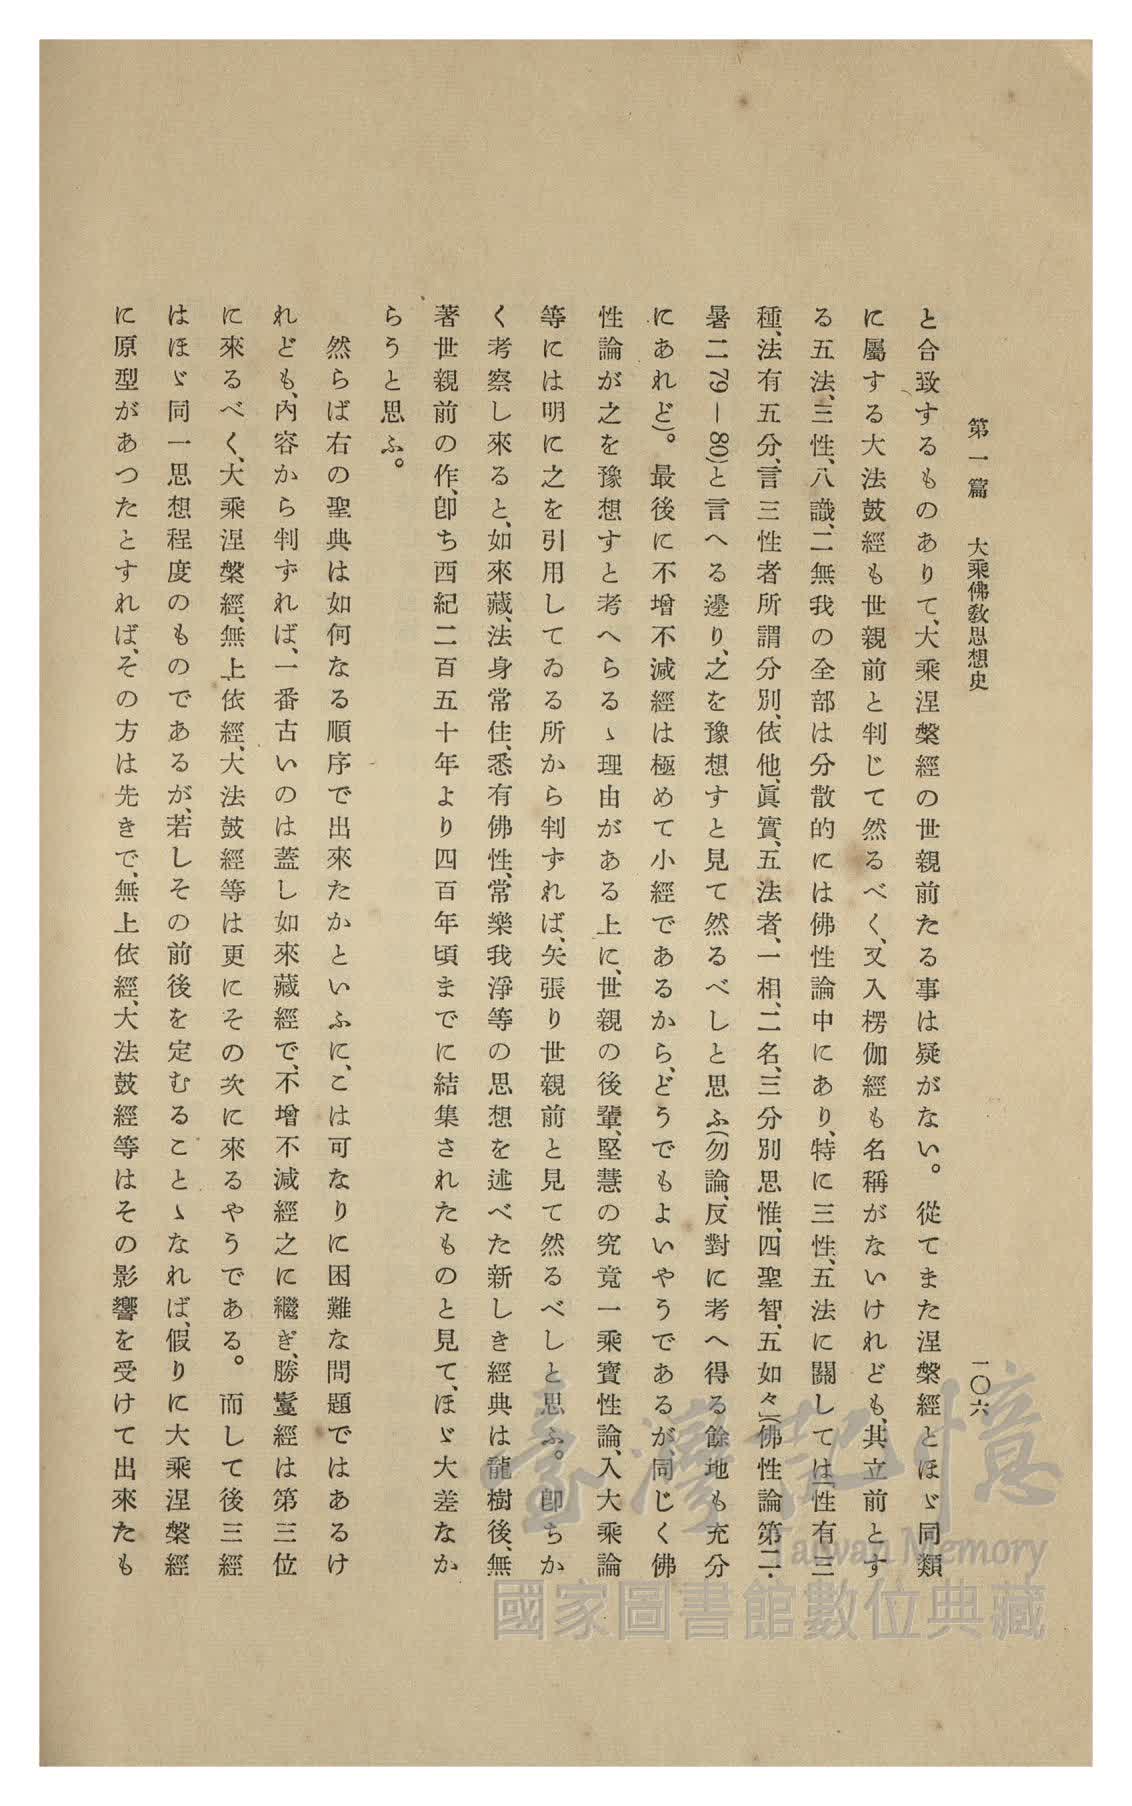 第一篇　大乘佛敎思想史
一〇六
と合致するものありて、大乘涅槃經の世親前たる事は疑がない。從てまた涅槃經とほゞ同類
に屬する大法鼓經も世親前と判じて然るべく、又入楞伽經も名稱がないけれども、其立前とす
る五法、三性、八識、二無我の全部は分散的には佛性論中にあり、特に三性、五法に關しては(性有三
種、法有五分、言三性者所謂分別、依他、眞實、五法者、一相、二名、三分別思惟、四聖智、五如々)(佛性論第二・
暑二79—80)と言へる邊り、之を豫想すと見て然るべしと思ふ(勿論、反對に考へ得る餘地も充分
にあれど)。最後に不增不減經は極めて小經であるから、どうでもよいやうであるが、同じく佛
性論が之を豫想すと考へらるゝ理由がある上に、世親の後輩、堅慧の究竟一乘寶性論、入大乘論
等には明に之を引用してゐる所から判ずれば、矢張り世親前と見て然るべしと思ふ。卽ちか
く考察し來ると、如來藏、法身常住、悉有佛性、常樂我淨等の思想を述べた新しき經典は龍樹後、無
著世親前の作、卽ち西紀二百五十年より四百年頃までに結集されたものと見て、ほゞ大差なか
らうと思ふ。
然らば右の聖典は如何なる順序で出來たかといふに、こは可なりに困難な問題ではあるけ
れども、內容から判ずれば、一番古いのは蓋し如來藏經で、不增不減經之に繼ぎ、勝鬘經は第三位
に來るべく、大乘涅槃經、無上依經、大法鼓經等は更にその次に來るやうである。而して後三經
はほゞ同一思想程度のものであるが、若しその前後を定むることゝなれば、假りに大乘涅槃經
に原型があつたとすれば、その方は先きで、無上依經、大法鼓經等はその影響を受けて出來たも
臺灣記憶
Taiwan Memory
國家圖書館數位典藏